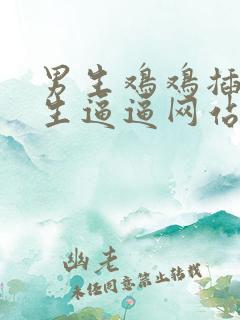 男生鸡鸡插
生逼逼网佔
幽老
未经同意禁止转载